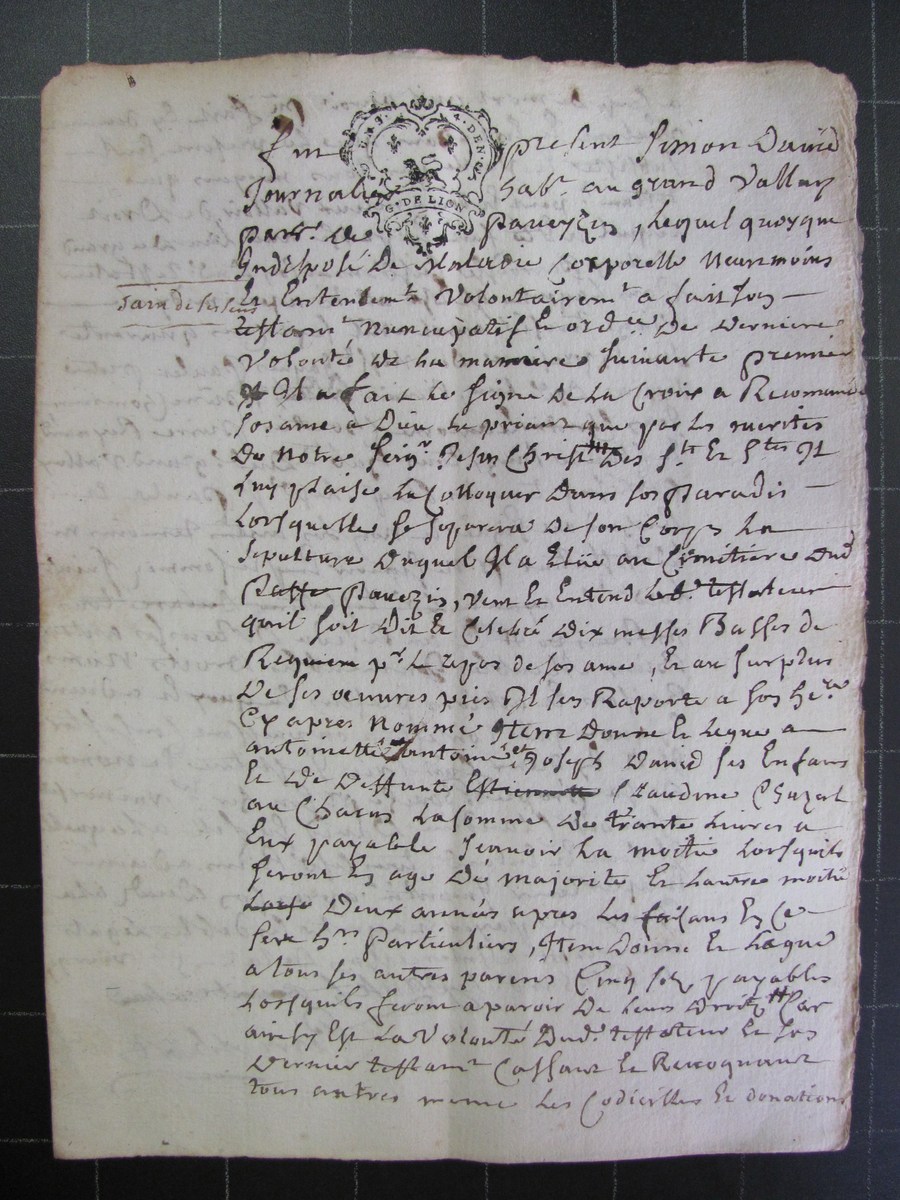 GENE. 4. DEN.
G. DE LION
fut present Simon David
Journalier habt. au grand Vallaz
parr. de Paveyzin, Lequel quoyque
Indisposé De Maladie Corporelle Neanmoins
sain de ses sens
Et Entendemt. Volontairemt. a fait son
testamt. Nuncupatif et ord.ce De Derniere
Volonté De la maniere suivante premier
Il a fait Le signe De La Croix a Recommandé
son ame a Dieu Le priant que par les merites
De Notre Seigr. Jesus Christ Des Sts. Et Stes. Il
Luy plaise La Colloquer Dans son Paradis
Lorsquelle se separera De son Corps La
sepulture Duquel Il a Eliie au Cimetiere Dud.
Pavezin, veut Et Entend Led. testateur
quil soit Dit Et Celebré Dix messes Basses de
Requiem pr. Le repos de son ame, Et au surplus
De ses œuvres pies Il sen Raporte a son he.er
Cy apres Nommé Item Donne Et Legue a
antoinette, antoine et Joseph David ses Enfans
Et De Deffunte Claudine Chuzel
au Chacun La somme De trante Livres a
Eux payable scavoir La moitié Lorsquils
seront En age De majorité Et Lautre moitié
Deux années apres Les faisans En Ce
ses hrs. Particuliers, Item Donne Et Legue
a tous ses autres parens Cinq sols payables
Lorsquils feront aparoir De Leurs Droits Car
ainsy Est La Volonté Dud. testateur Et son
Dernier testamt. Cassant Et Revoquant
tous autres meme Les Codicilles Et donations